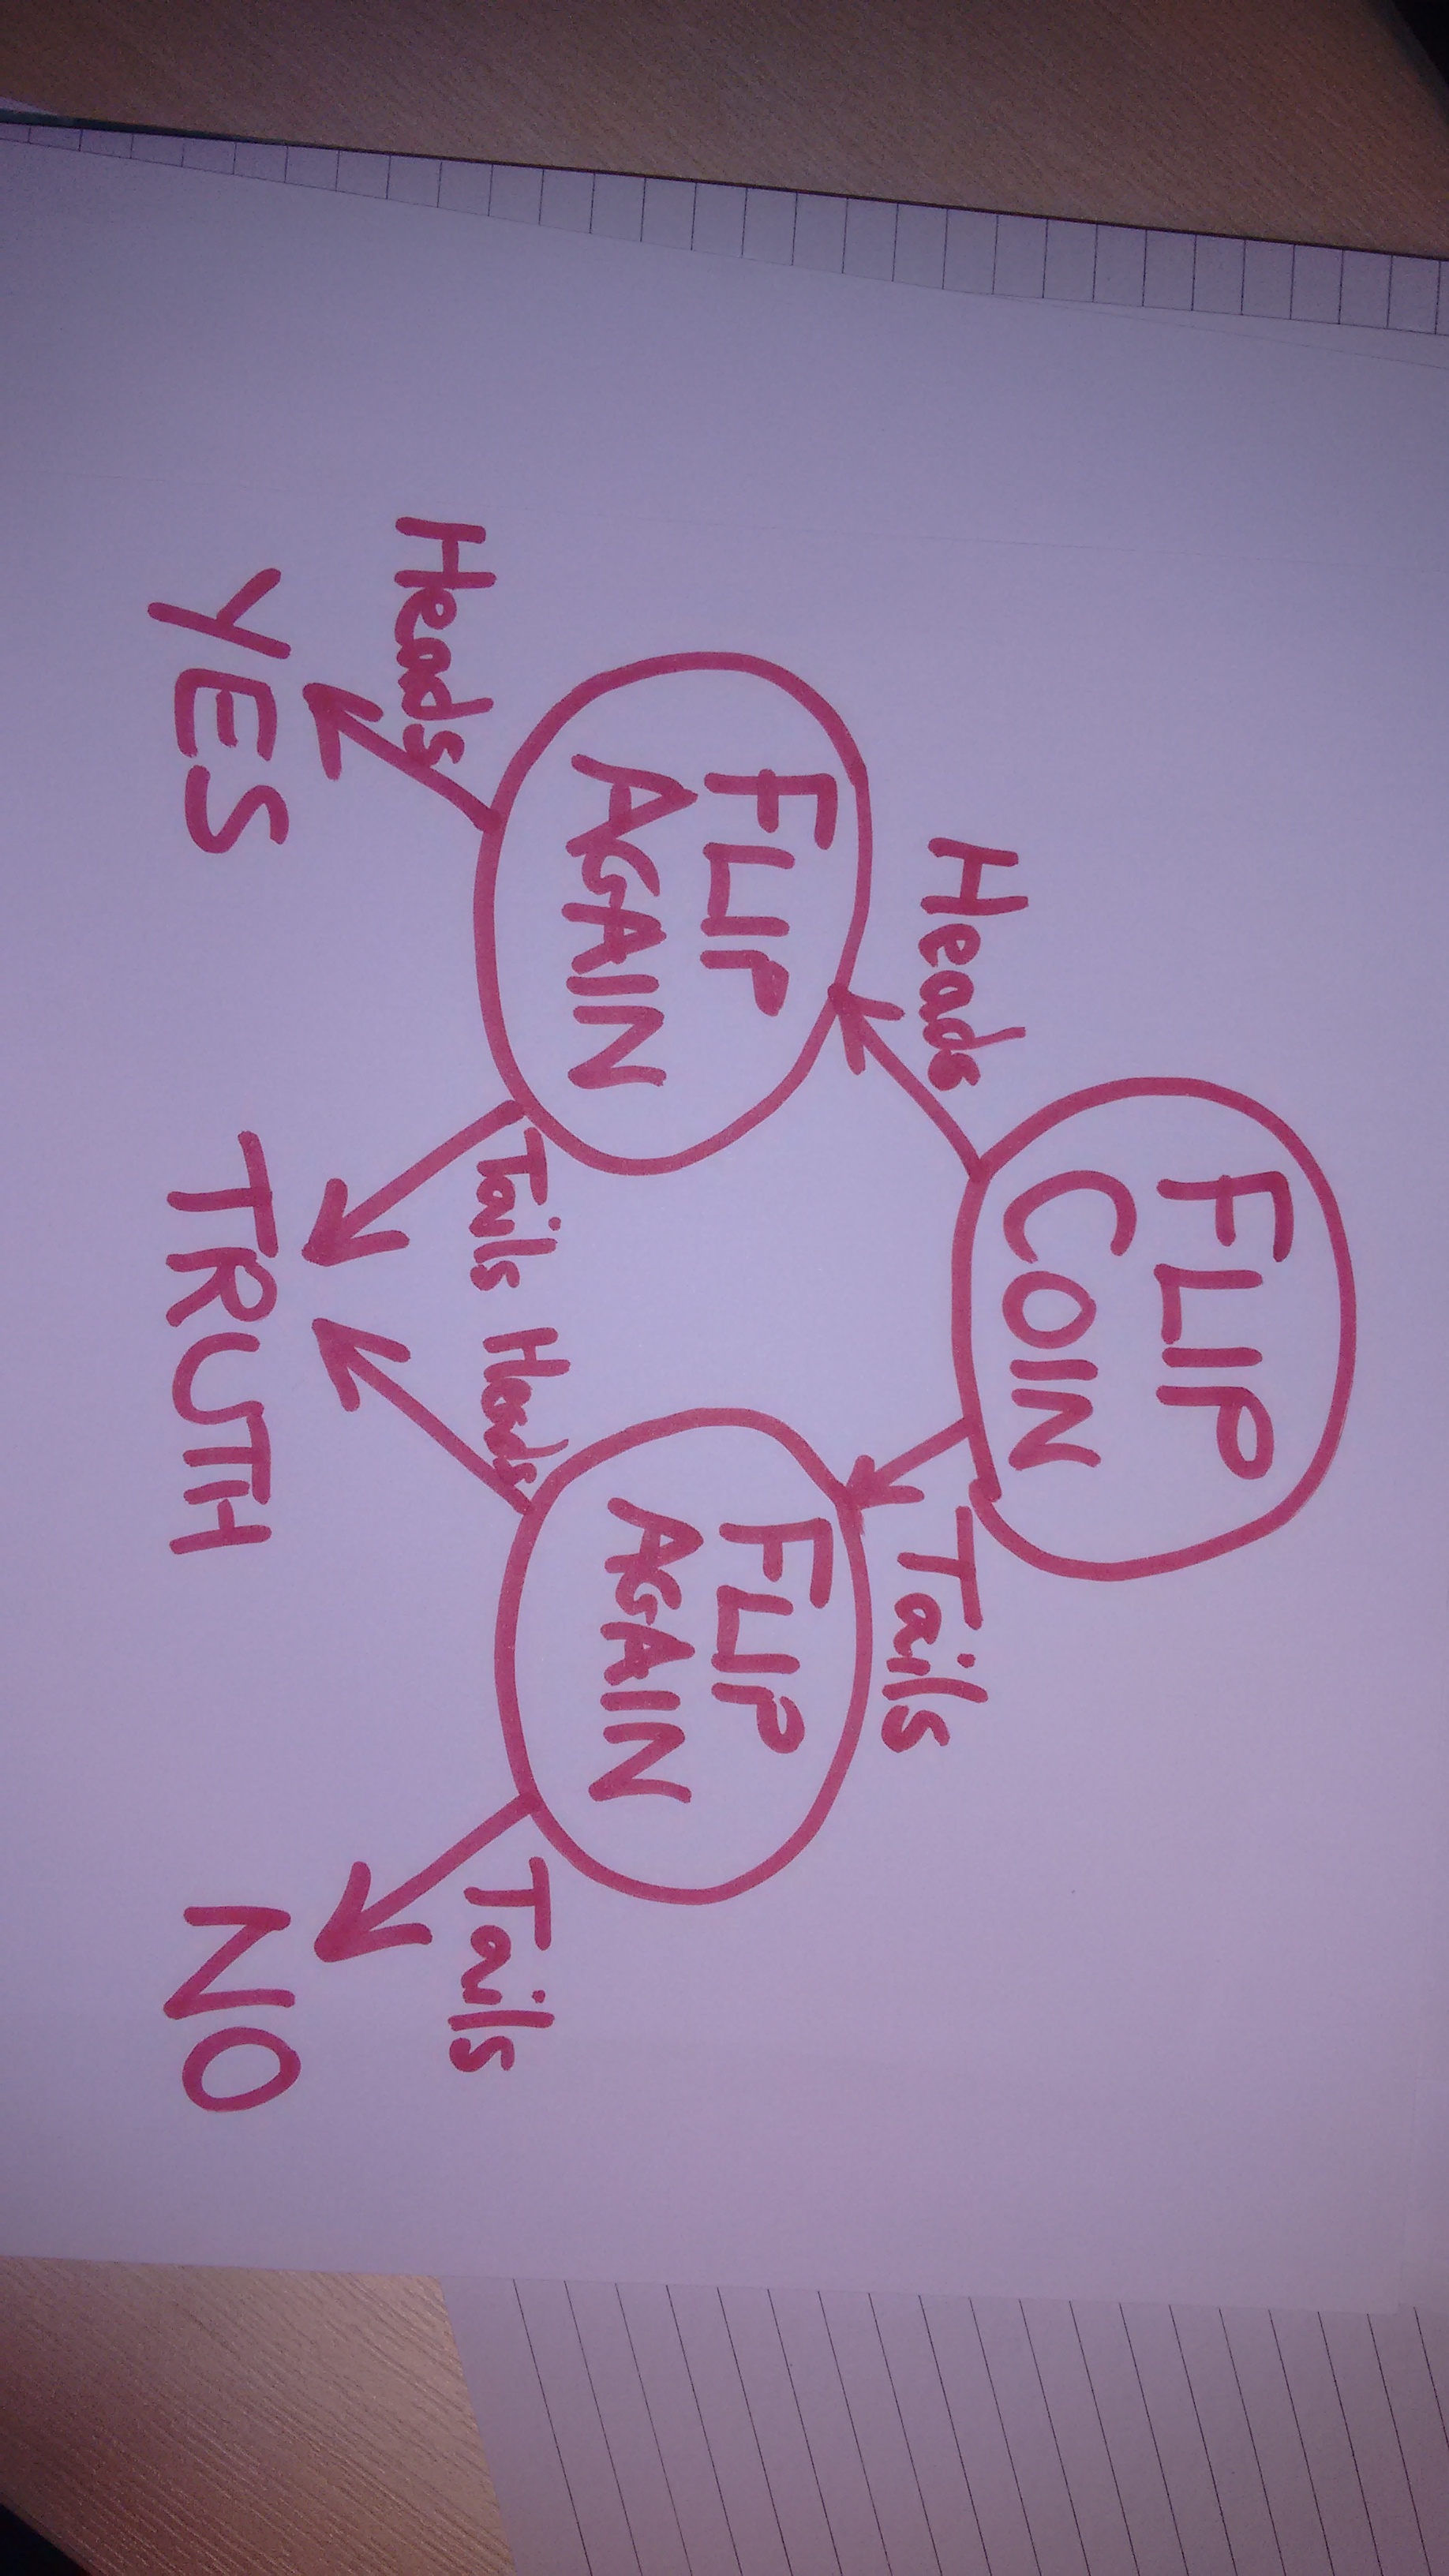 FLIP
COIN
Heads
Tails
FLIP
AGAIN
FLIP
AGAIN
Heads
Tails
Heads
Tails
YES
TRUTH
NO